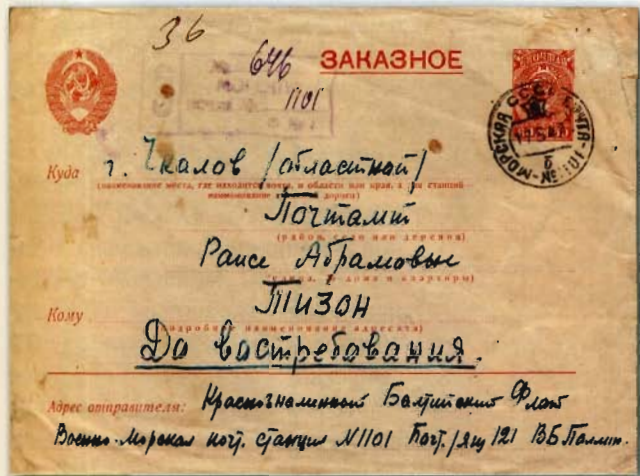 36
646 ЗАКАЗНОЕ
1101
Куда г. Чкалов (областной)
(наименование места, где находится почта, и области или края, а для станций
наименование дороги)
Почтамт
(район, село или деревня)
Раисе Абрамовне
(улица, № дома и квартиры)
Кому ТИЗОН
(подробное наименование адресата)
До востребования.
Адрес отправителя: Краснознаменный Балтийский Флот
Военно-Морская почт. станция N1101 Почт./ящ 121 ВБ Паллин.